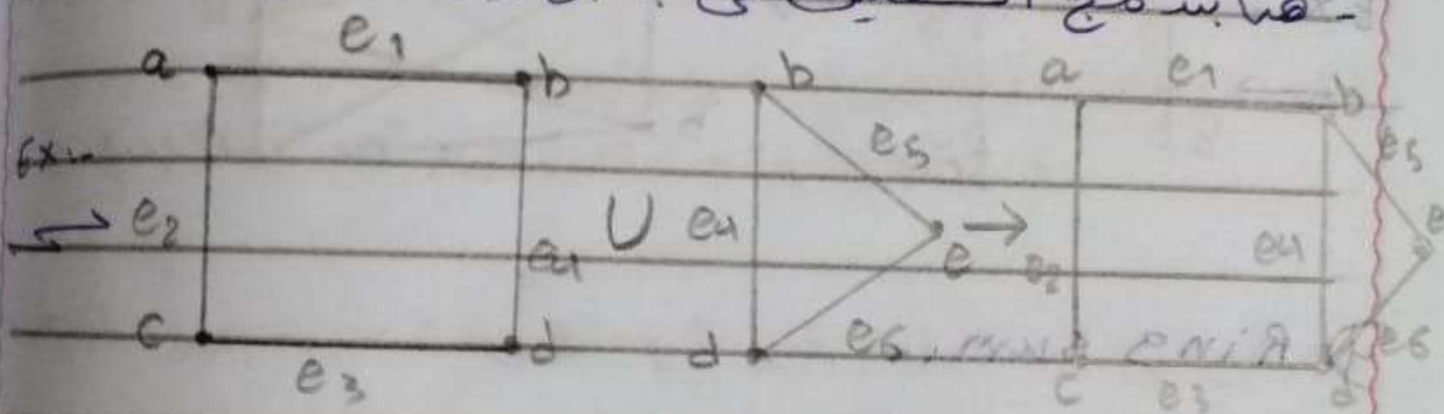 a e1 b b a e1 b
Ex:- e5 e5
e2 e4 U e4 e → e2 e4 e
c d d e6 c e3 d e6
e3